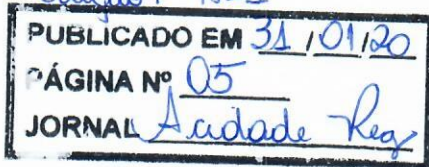 PUBLICADO EM 31/01/20
PÁGINA Nº 05
JORNAL A cidade Reg